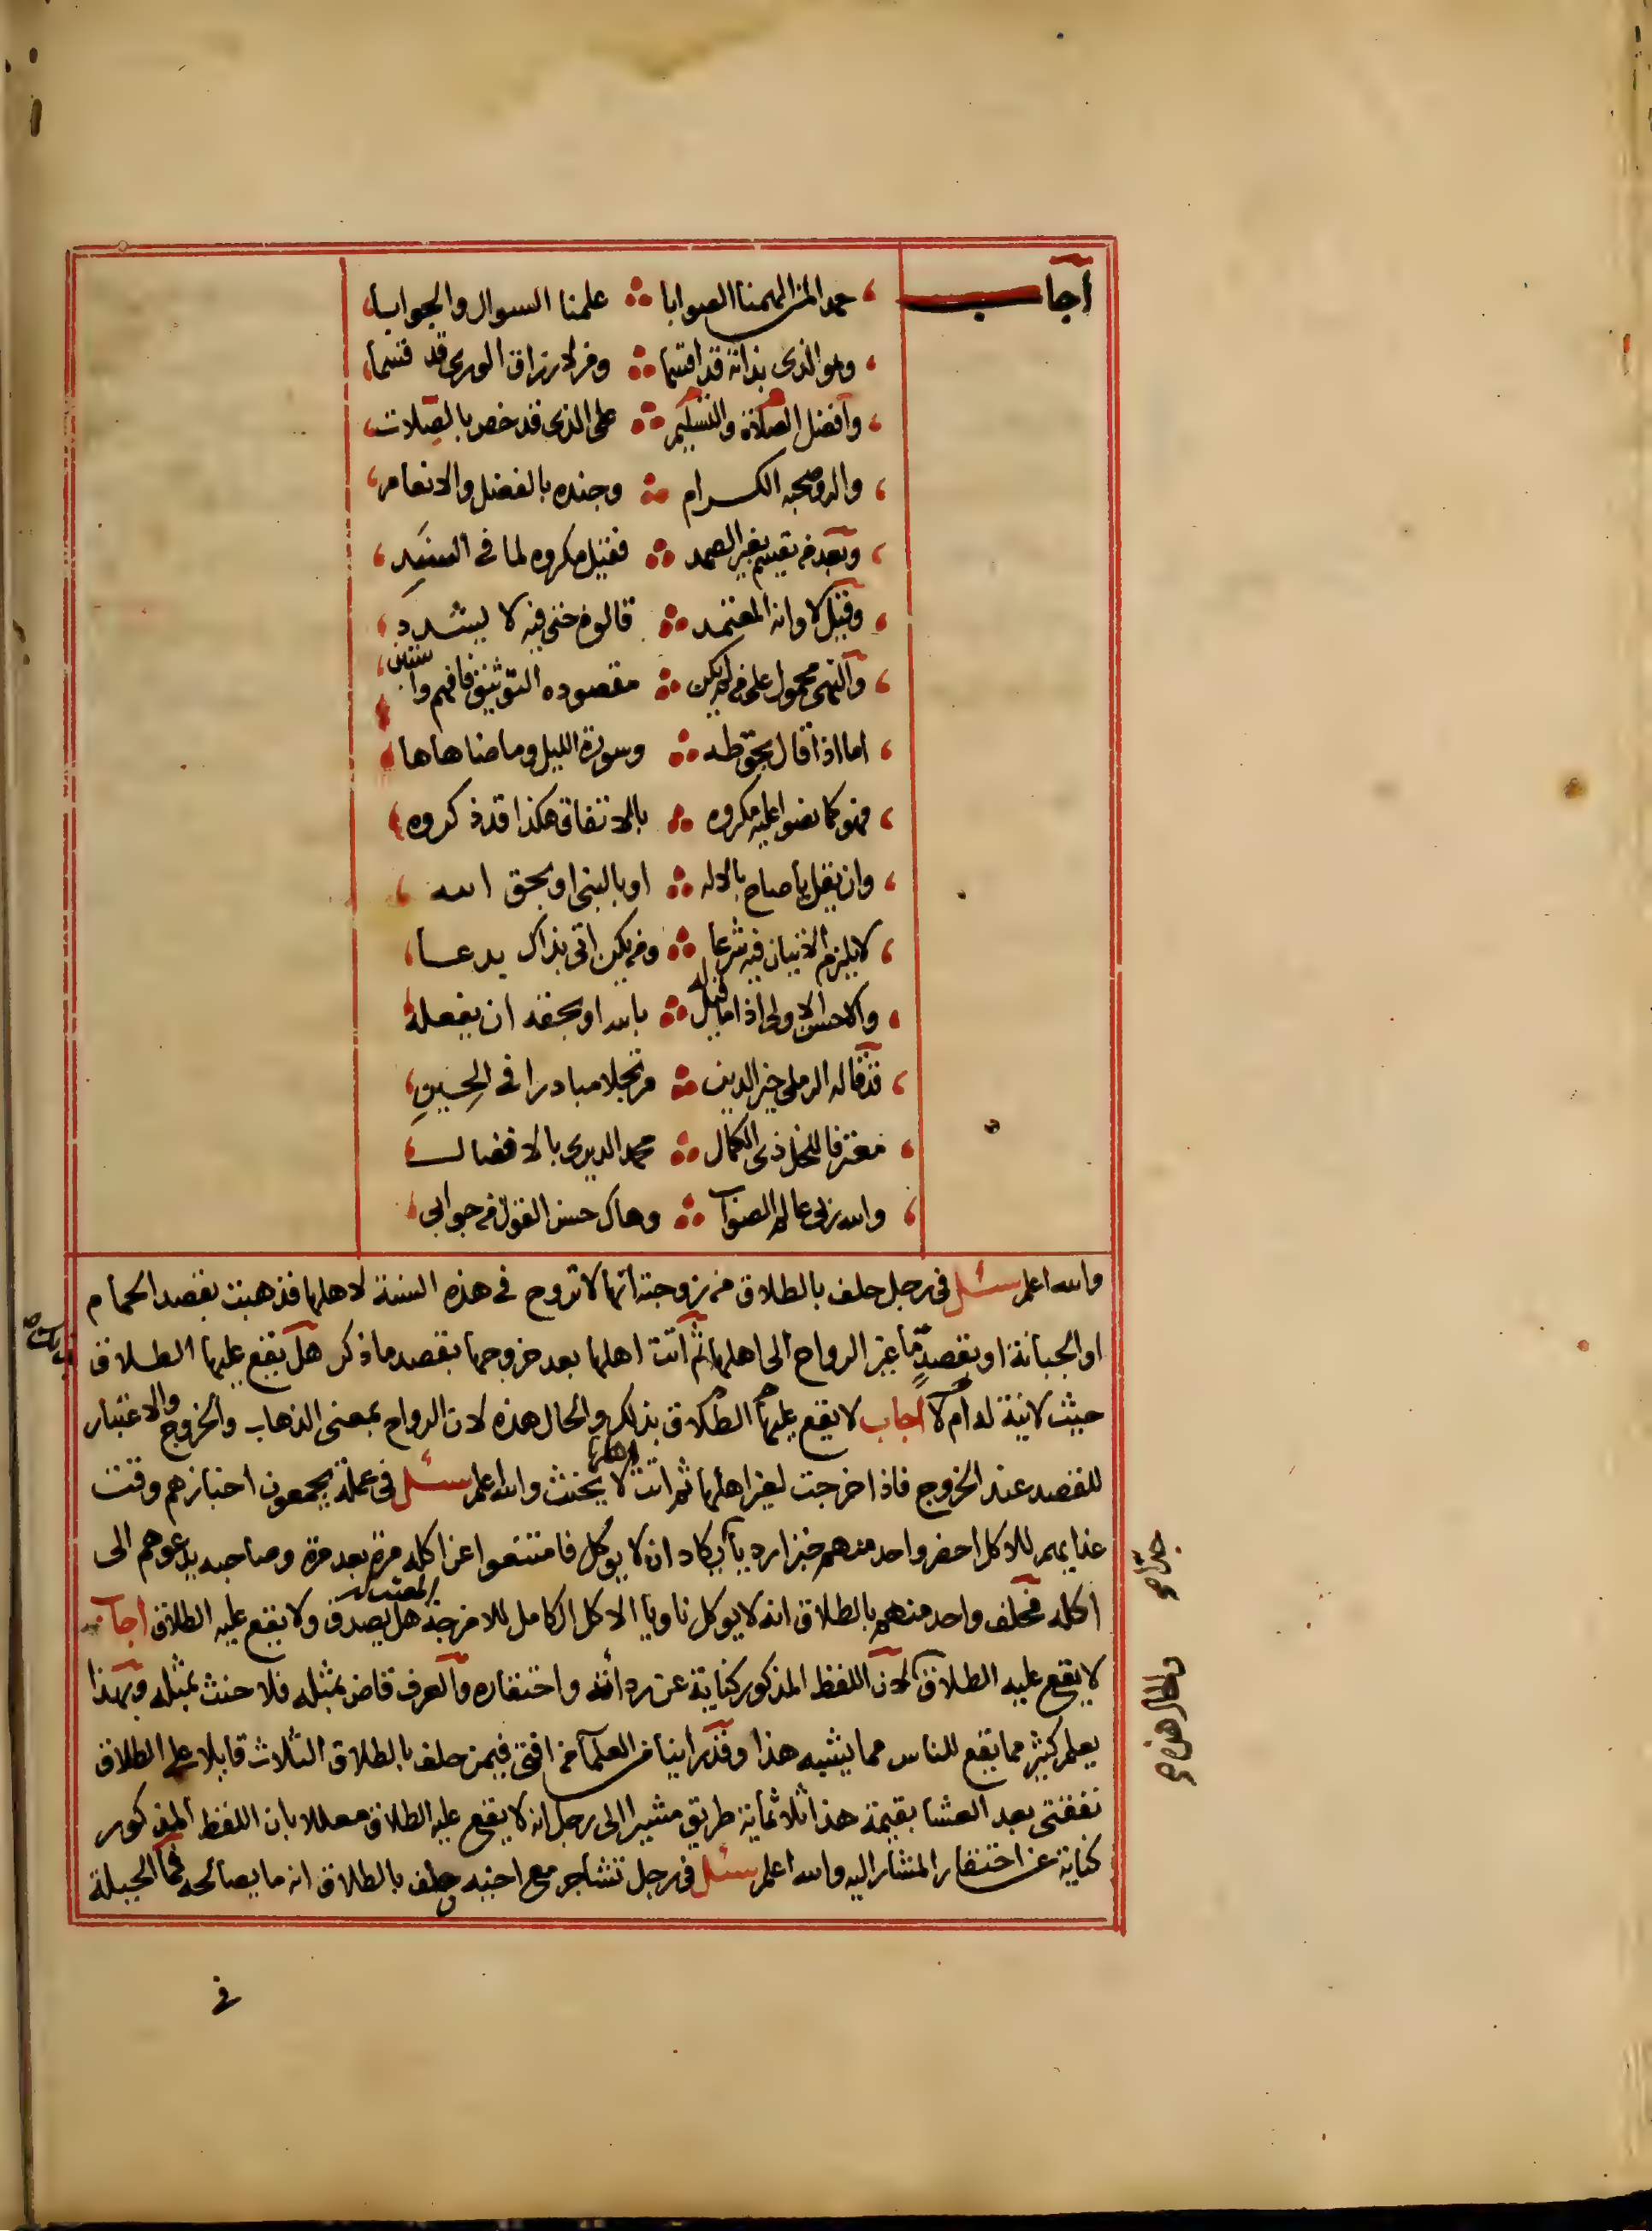 أجاب
حمدا لمن الهمنا الصوابا ∴ علمنا السوال والجوابا
وهو الذي بذاته قد اقسما ∴ ومن لارزاق الورى قد قسما
وأفضل الصلاة والتسليم ∴ على الذي قد خص بالصلات
واله وصحبه الكرام ∴ وجنده بالفضل والانعام
وبعد من يقسم بغير الصمد ∴ فقيل مكروه لما في السند
وقيل لا وانه المعتمد ∴ قالوه حتى فيه لا يشدد
والنهي محمول على من لم يكن ∴ مقصوده التوثيق فافهم واستبن
اما اذا قال بحق طه ∴ وسورة الليل وما ضاهاها
فهو كما نصوا عليه مكروه ∴ بالاتفاق هكذا قد ذكروه
وان يقل يا صاح بالاله ∴ او بالنبي او بحق الله
لا يلزم الاتيان فيه شرعا ∴ ومن يكن اتى بذاك يدعا
والاحسن الاولى اذا ما قيل له ∴ بالله او بحقه ان يفعله
قد قاله الرملي خير الدين ∴ مرتجلا مبادرا في الحين
معترفا للخل ذي الكمال ∴ محمد الديري بالافضال
والله ربي عالم الصواب ∴ وهاك حسن القول من جوابي
والله اعلم سئل في رجل حلف بالطلاق من زوجته أنها لا تروح في هذه السنة لاهلها فذهبت بقصد الحمام
او الجبانة او بقصد ما غير الرواح الى اهلها ثم أتت اهلها بعد خروجها بقصد ما ذكر هل يقع عليها الطلاق
حيث لا نية له ام لا أجاب لا يقع عليها الطلاق بذلك والحال هذه لان الرواح بمعنى الذهاب والخروج والاعتبار
للقصد عند الخروج فاذا خرجت لغير اهلها ثم اتت اهلها لا يحنث والله اعلم سئل في عملة يجمعون اخبازهم وقت
غدايهم للاكل احضر واحد منهم خبزا رديأ يكاد ان لا يوكل فامتنعوا عن اكله مرة بعد مرة وصاحبه يدعوهم الى
اكله فحلف واحد منهم بالطلاق انه لا يوكل ناويا الاكل الكامل للامزجة المعتدلة هل يصدق ولا يقع عليه الطلاق اجاب
لا يقع عليه الطلاق لان اللفظ المذكور كناية عن ردائته واحتقاره والعرف قاض بمثله فلا حنث بمثله وبهذا
يعلم كثير مما يقع للناس مما يشبه هذا وقد راينا من العلمآ من افتى فيمن حلف بالطلاق الثلاث قايلا علي الطلاق
نفقتي بعد العشا بقيمة هذا ثلاثماية طريق مشيرا الى رجل انه لا يقع عليه الطلاق معللا بان اللفظ المذكور
كناية عن احتقار المشار اليه والله اعلم سئل في رجل تشاجر مع اخيه وحلف بالطلاق انه ما يصالحه فما الحيلة
في